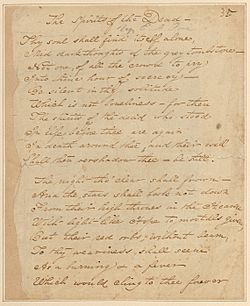 The Spirits of the Dead
35
Thy soul shall find itself alone
dark thoughts of the grey tomb stone
Not one, of all the crowd to pry
Into thine hour of secrecy
Be silent in thy solitude
Which is not loneliness - for then
The spirits of the dead who stood
In life before thee are again
In death around thee, and their will
Shall then overshadow thee - be still
The night, tho' clear shall frown -
And the stars shall look not down
From their high thrones in the Heaven
With light like Hope to mortals given
But their red orbs, without beam,
To thy weariness, shall seem
As a burning & a fever
Which would cling to thee forever